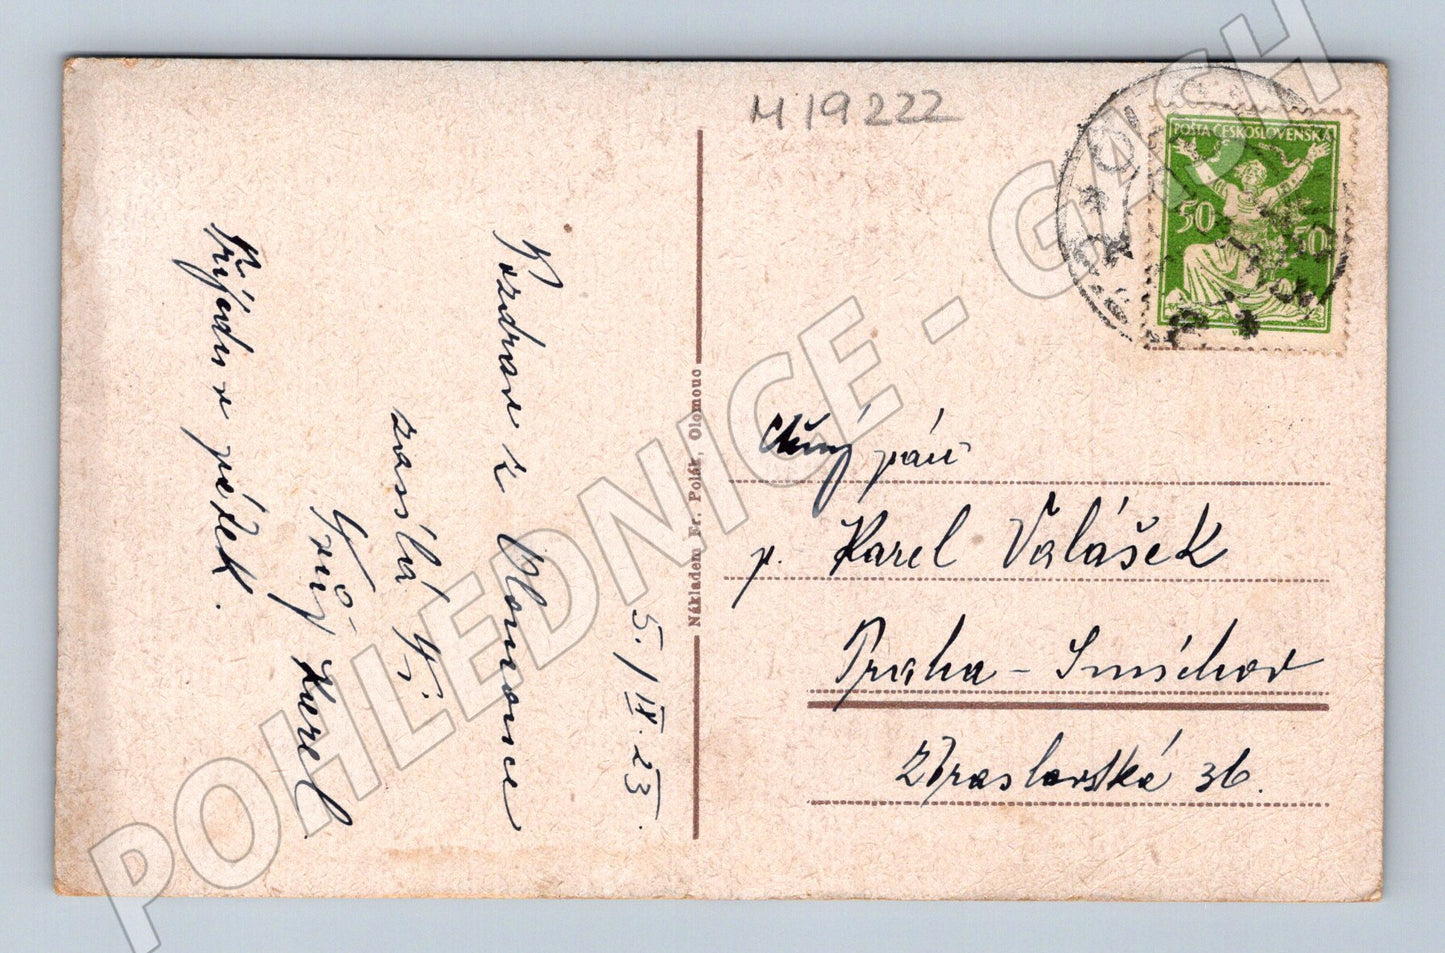 M 19222
POŠTA ČESKOSLOVENSKÁ
50 50
5./IX. 23.
Pozdrav z Olomouce
zasílá Vi.
Karel
Přijedu v pátek.
Nákladem Fr. Polák, Olomouc
pán
p. Karel Valášek
Praha - Smíchov
Zbraslavská 36.
POHLEDNICE - GASH